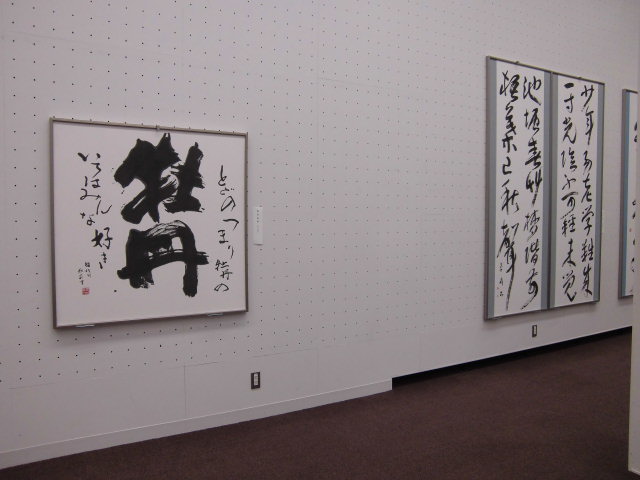 とどのつまり牡丹の
牡丹
いろはみんな好き
少年易老学難成
一寸光陰不可軽未覚
池塘春草夢階前
梧葉已秋聲